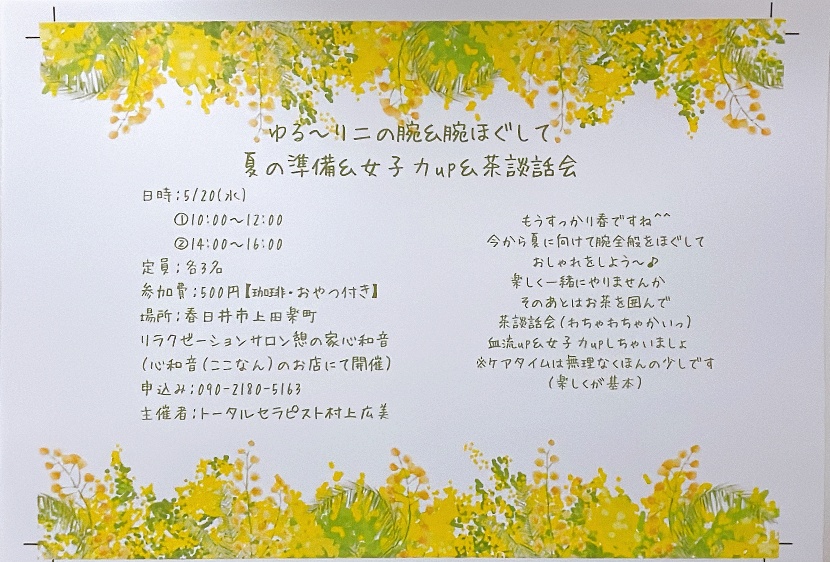 ゆる～リニの腕&腕ほぐして
夏の準備&女子力up&茶談話会
日時;5/20(水)
①10:00～12:00
②14:00～16:00
定員;各3名
参加費;500円【珈琲・おやつ付き】
場所;春日井市上田楽町
リラクゼーションサロン憩の家心和音
(心和音(ここなん)のお店にて開催)
申込み;090-2180-5163
主催者;トータルセラピスト村上広美
もうすっかり春ですね^^
今から夏に向けて腕全般をほぐして
おしゃれをしよう～♪
楽しく一緒にやりませんか
そのあとはお茶を囲んで
茶談話会(わちゃわちゃかいっ)
血流up&女子力upしちゃいましょ
※ケアタイムは無理なくほんの少しです
(楽しくが基本)